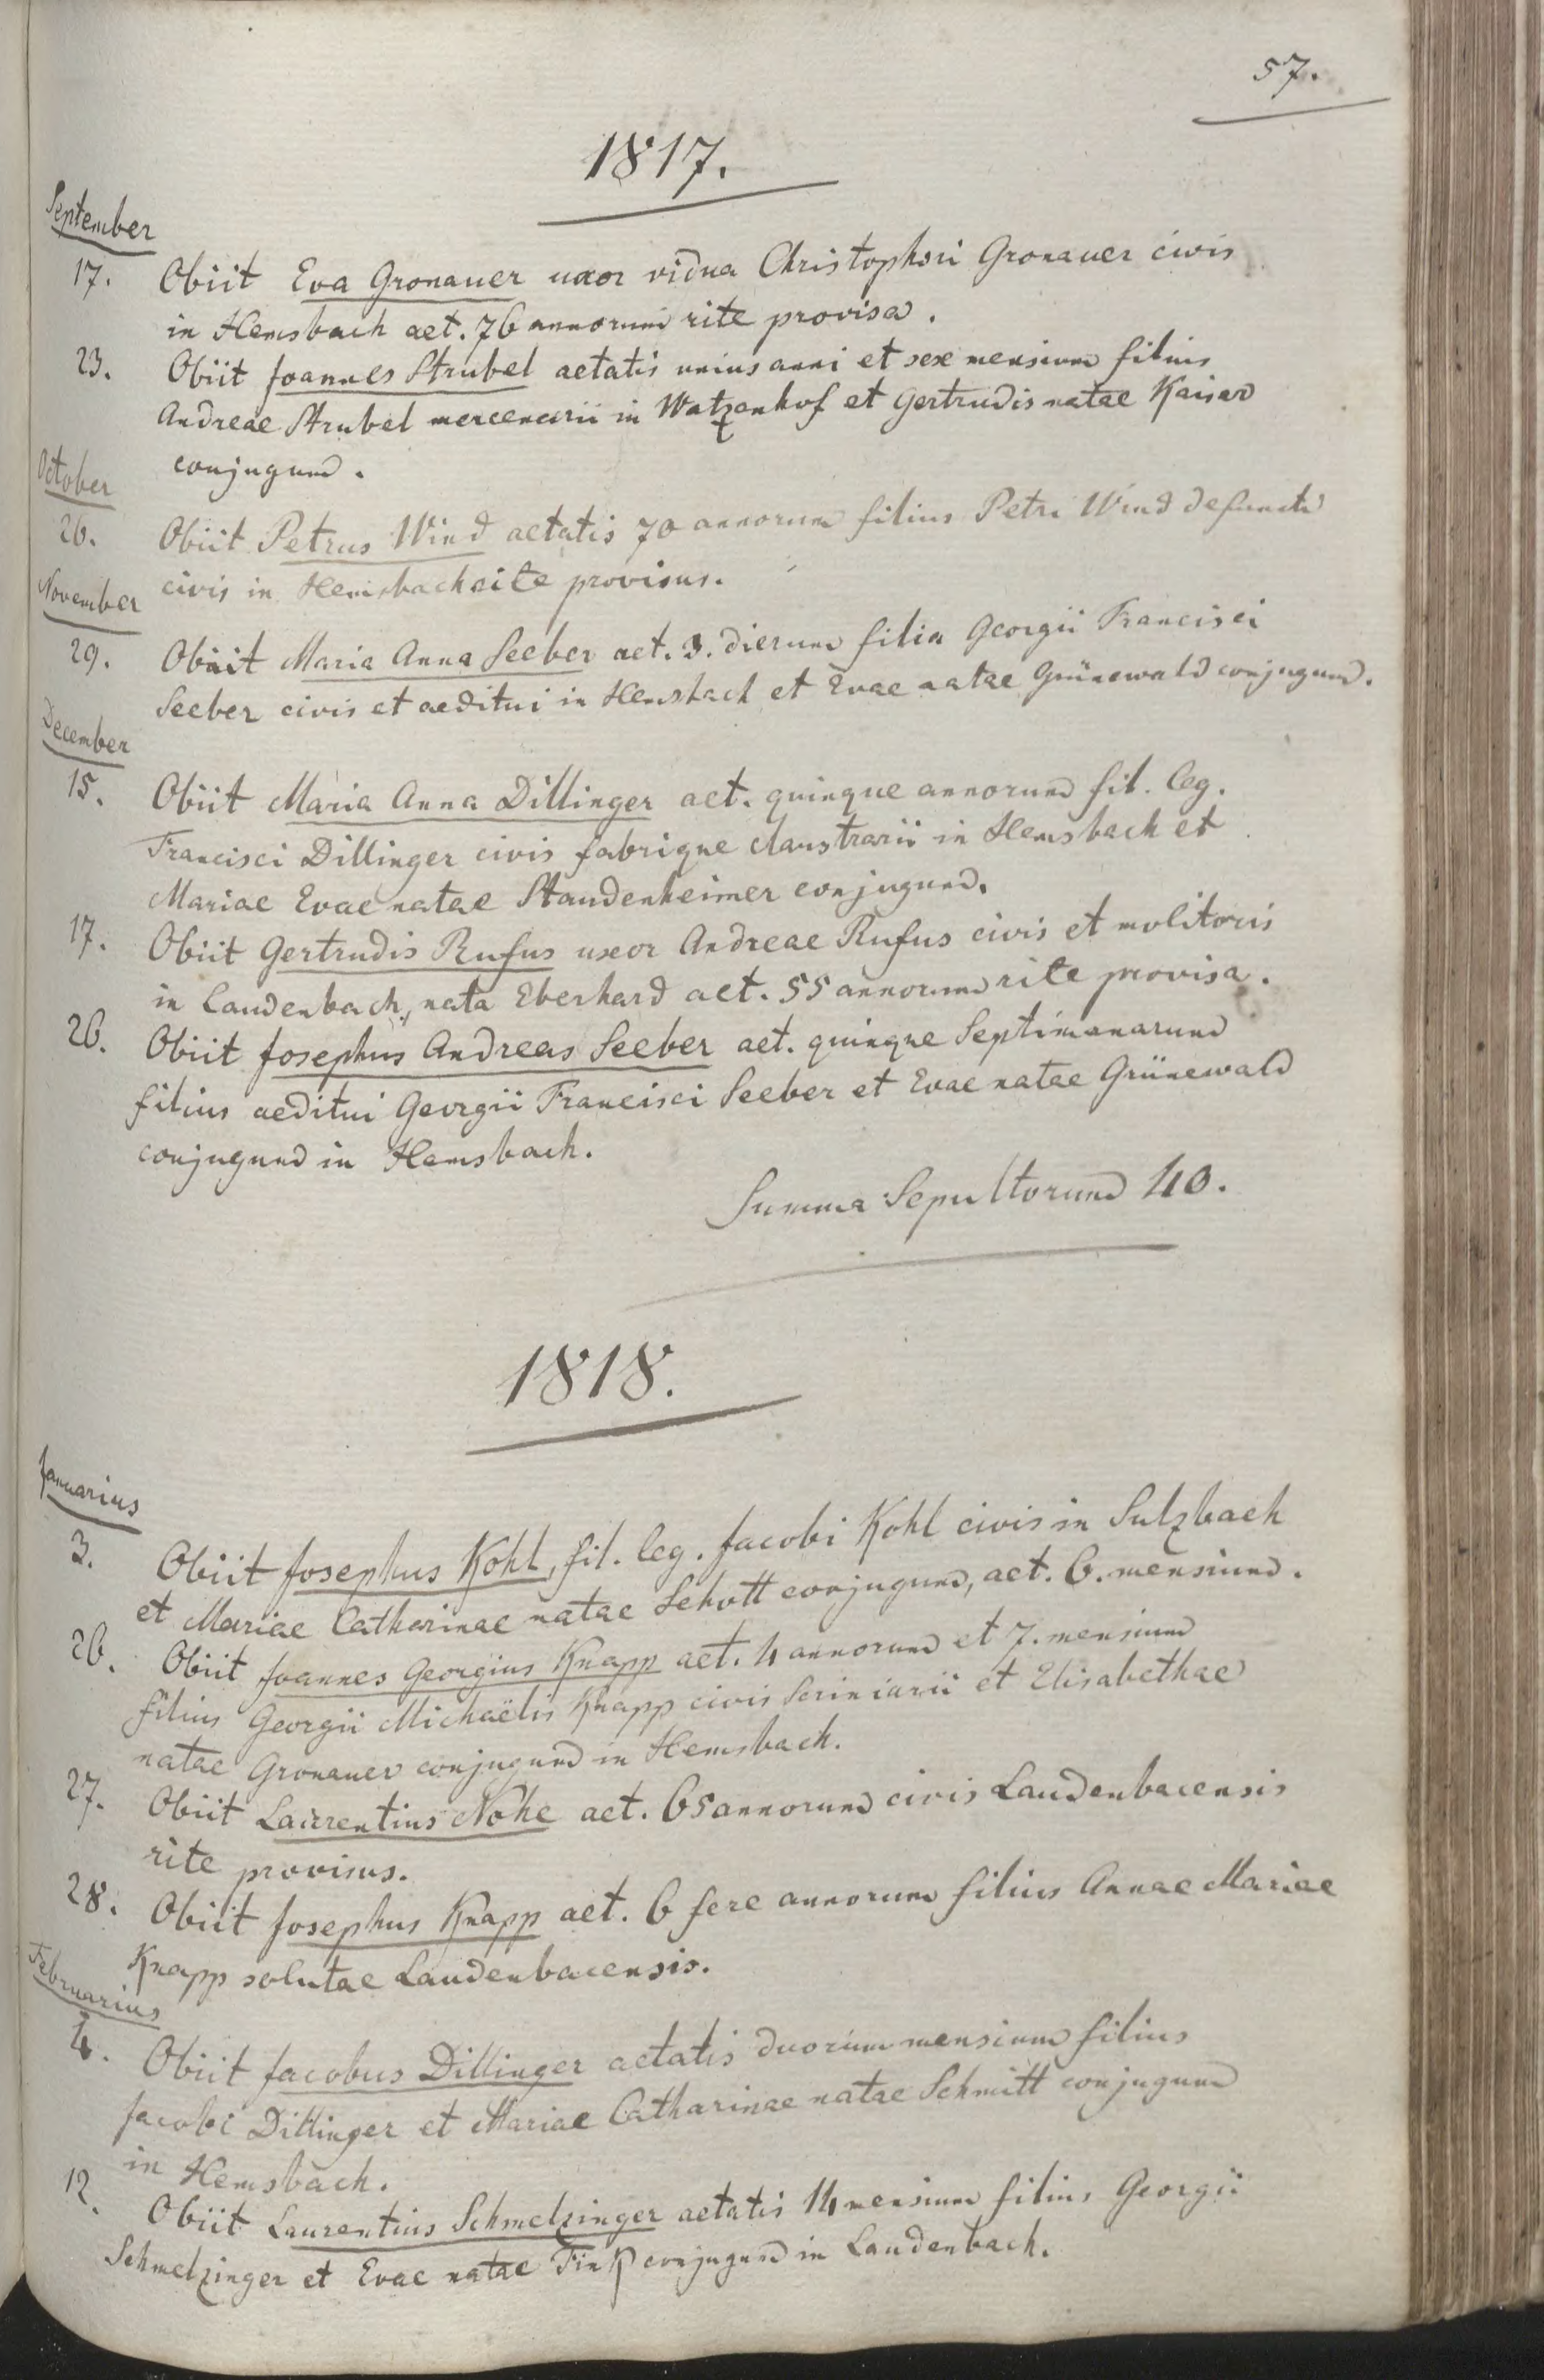 57.
1817.
September
17. Obiit Eva Gronauer uxor vidua Christophori Gronauer civis
in Hemsbach aet. 76 annorum rite provisa.
23. Obiit Joannes Strubel aetatis unius anni et sex mensium filius
Andreae Strubel mercenarii in Watzenhof et Gertrudis natae Kaiser
conjugum.
October
26. Obiit Petrus Wind aetatis 70 annorum filius Petri Wind defuncti
civis in Hemsbach rite provisus.
November
29. Obiit Maria Anna Seeber aet. 3. dierum filia Georgii Francisci
Seeber civis et aeditui in Hemsbach et Evae natae Grünewald conjugum.
December
15. Obiit Maria Anna Dillinger aet. quinque annorum fil. leg.
Francisci Dillinger civis fabrique claustrarii in Hemsbach et
Mariae Evae natae Staudenheimer conjugum.
17. Obiit Gertrudis Rufus uxor Andreae Rufus civis et molitoris
in Laudenbach, nata Eberhard aet. 55 annorum rite provisa.
26. Obiit Josephus Andreas Seeber aet. quinque Septimanarum
filius aeditui Georgii Francisci Seeber et Evae natae Grünewald
conjugum in Hemsbach.
Summa Sepultorum 40.
1818.
Januarius
3. Obiit Josephus Kohl, fil. leg. Jacobi Kohl civis in Sulzbach
et Mariae Catharinae natae Schott conjugum, aet. 6. mensium.
26. Obiit Joannes Georgius Knapp aet. 4 annorum et 7. mensium
filius Georgii Michaëlis Knapp civis Scriniarii et Elisabethae
natae Gronauer conjugum in Hemsbach.
27. Obiit Laurentius Nohe aet. 65 annorum civis Laudenbacensis
rite provisus.
28. Obiit Josephus Knapp aet. 6 fere annorum filius Annae Mariae
Knapp solutae Laudenbacensis.
Februarius
4. Obiit Jacobus Dillinger aetatis duorum mensium filius
Jacobi Dillinger et Mariae Catharinae natae Schmitt conjugum
in Hemsbach.
12. Obiit Laurentius Schmelzinger aetatis 14 mensium filius Georgii
Schmelzinger et Evae natae Fink conjugum in Laudenbach.